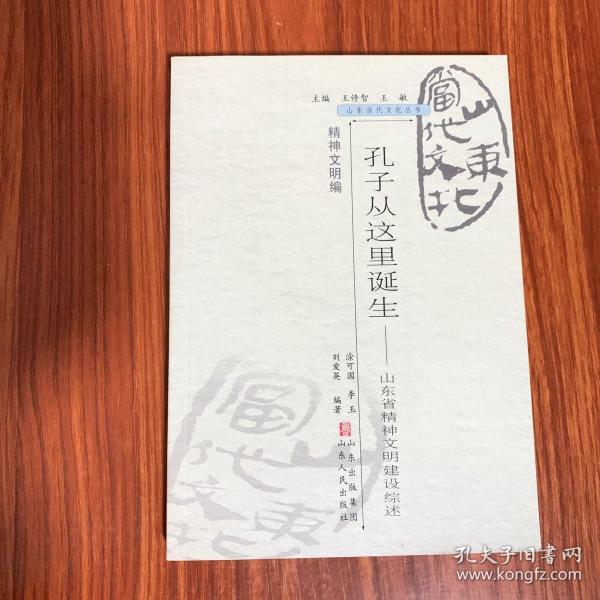 主编 王修智 王敏
山东当代文化丛书
精神文明编
孔子从这里诞生
——山东省精神文明建设综述
涂可国 李玉
刘爱英 编著
山东出版集团
山东人民出版社
山东
當代文化
山东
當代文化
孔夫子旧书网
www.kongfz.com